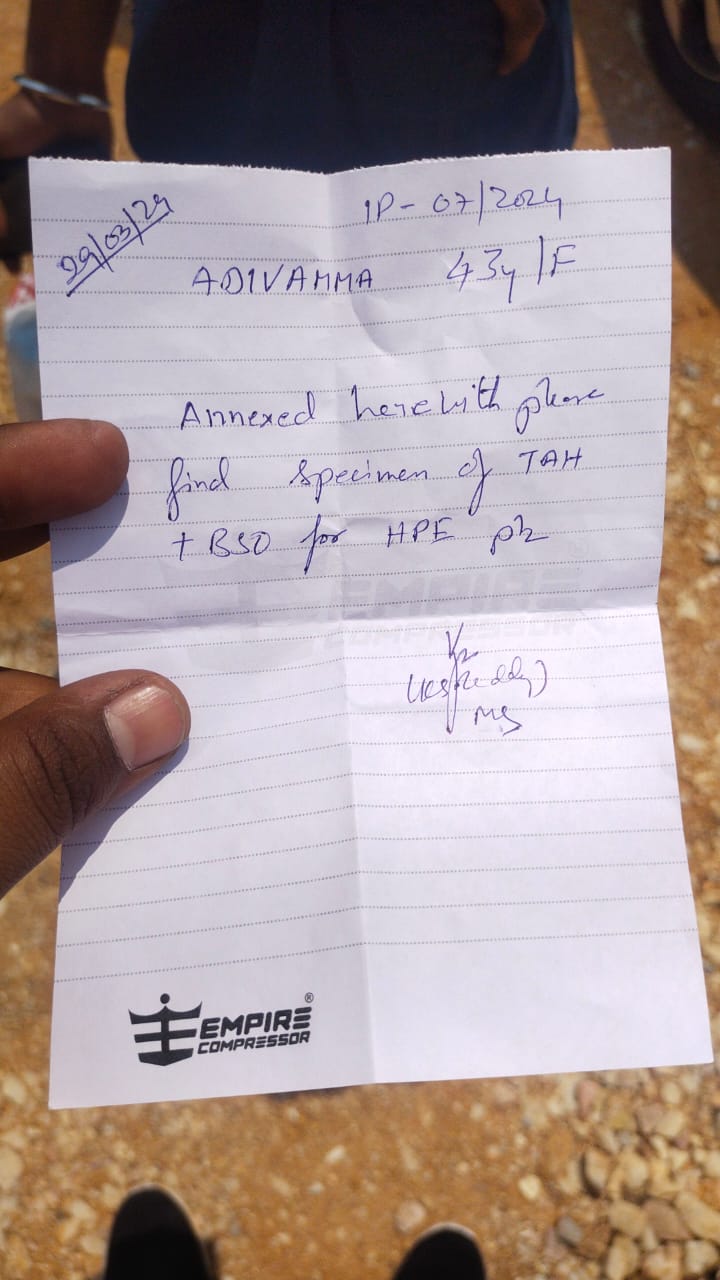 29/03/24
IP - 07/2024
ADIVAMMA 43y/F
Annexed herewith please
find specimen of TAH
+ BSO for HPE plz
Reddy)
MS
EMPIRE®
COMPRESSOR